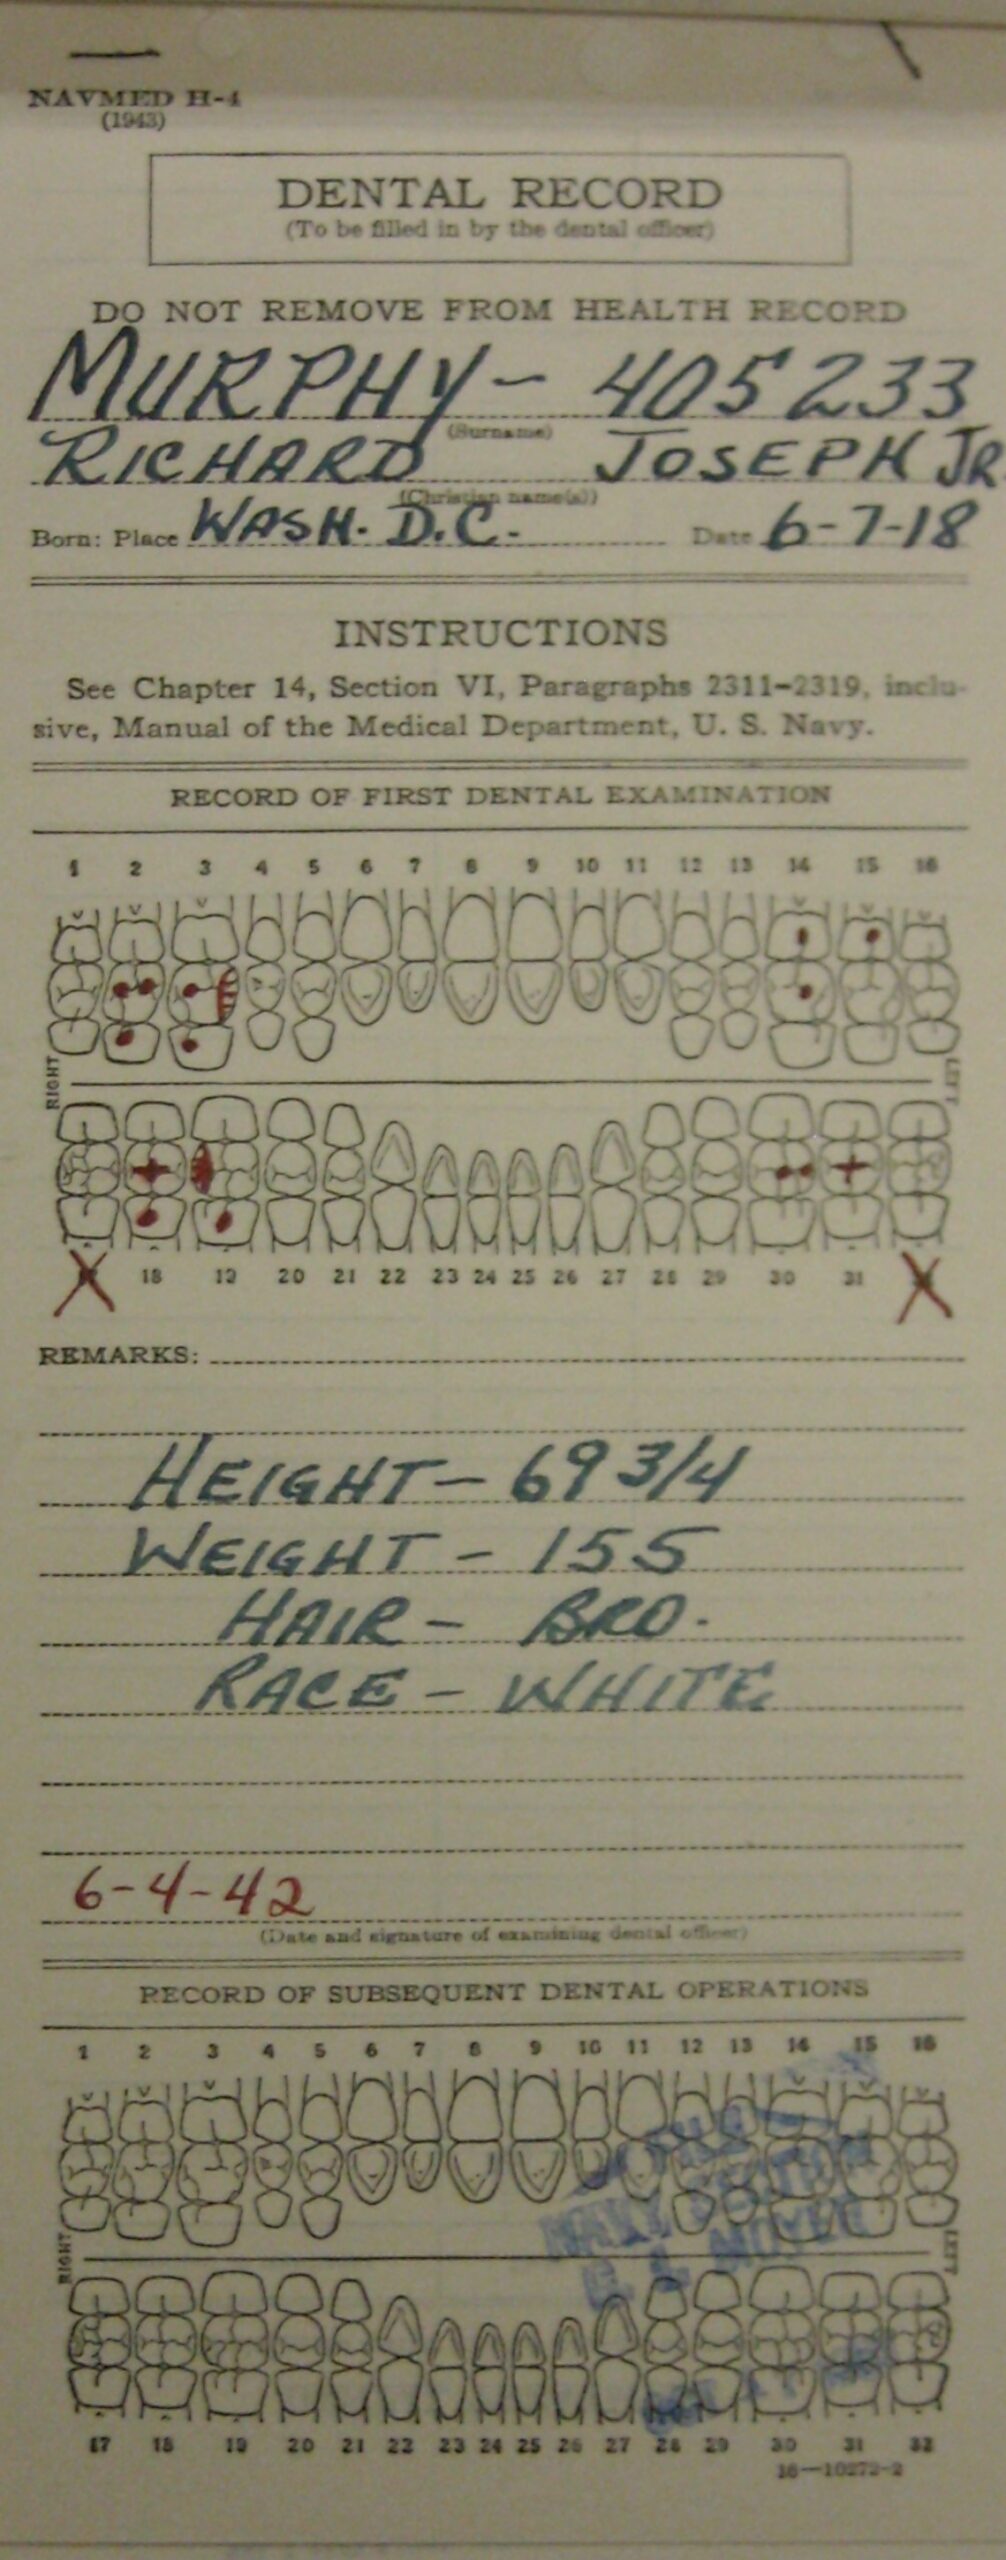 NAVMED H-4
(1943)
DENTAL RECORD
(To be filled in by the dental officer)
DO NOT REMOVE FROM HEALTH RECORD
MURPHY - 405233
(Surname)
RICHARD JOSEPH JR.
(Christian name(s))
Born: Place WASH. D.C. Date 6-7-18
INSTRUCTIONS
See Chapter 14, Section VI, Paragraphs 2311-2319, inclu-
sive, Manual of the Medical Department, U. S. Navy.
RECORD OF FIRST DENTAL EXAMINATION
1 2 3 4 5 6 7 8 9 10 11 12 13 14 15 16
RIGHT LEFT
18 19 20 21 22 23 24 25 26 27 28 29 30 31
REMARKS:
HEIGHT - 69 3/4
WEIGHT - 155
HAIR - BRO.
RACE - WHITE
6-4-42
(Date and signature of examining dental officer)
RECORD OF SUBSEQUENT DENTAL OPERATIONS
1 2 3 4 5 6 7 8 9 10 11 12 13 14 15 16
RIGHT LEFT
17 18 19 20 21 22 23 24 25 26 27 28 29 30 31 32
16-10272-2